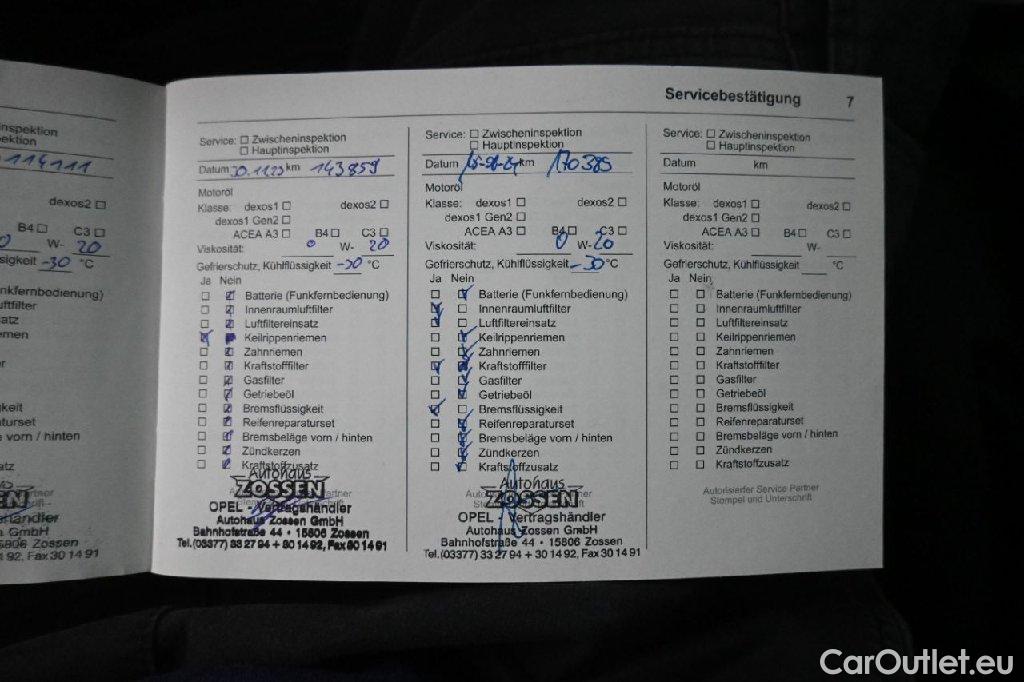 Servicebestätigung 7
nspektion
ektion
114111
dexos2 ☐
B4 ☐ C3 ☐
0 W- 20
sigkeit -30 °C
nkfernbedienung)
ftfilter
atz
emen
r
keit
turset
e vorn / hinten
satz
ZOSSEN
GmbH
5806 Zossen
4 92, Fax 30 14 91
Service: ☐ Zwischeninspektion
☐ Hauptinspektion
Datum 30.11.23 km 143859
Motoröl
Klasse: dexos1 ☐ dexos2 ☐
dexos1 Gen2 ☐
ACEA A3 ☐ B4 ☐ C3 ☐
Viskosität: 0 W- 20
Gefrierschutz, Kühlflüssigkeit -30 °C
Ja Nein
Batterie (Funkfernbedienung)
Innenraumluftfilter
Luftfiltereinsatz
Keilrippenriemen
Zahnriemen
Kraftstofffilter
Gasfilter
Getriebeöl
Bremsflüssigkeit
Reifenreparaturset
Bremsbeläge vorn / hinten
Zündkerzen
Kraftstoffzusatz
Autohaus
ZOSSEN
OPEL - Vertragshändler
Autohaus Zossen GmbH
Bahnhofstraße 44 • 15806 Zossen
Tel. (03377) 33 27 94 + 30 14 92, Fax 30 14 91
Service: ☐ Zwischeninspektion
☐ Hauptinspektion
Datum km 170385
Motoröl
Klasse: dexos1 ☐ dexos2 ☐
dexos1 Gen2 ☐
ACEA A3 ☐ B4 ☐ C3 ☐
Viskosität: 0 W- 20
Gefrierschutz, Kühlflüssigkeit -30 °C
Ja Nein
Batterie (Funkfernbedienung)
Innenraumluftfilter
Luftfiltereinsatz
Keilrippenriemen
Zahnriemen
Kraftstofffilter
Gasfilter
Getriebeöl
Bremsflüssigkeit
Reifenreparaturset
Bremsbeläge vorn / hinten
Zündkerzen
Kraftstoffzusatz
Autohaus
ZOSSEN
OPEL - Vertragshändler
Autohaus Zossen GmbH
Bahnhofstraße 44 • 15806 Zossen
Tel. (03377) 33 27 94 + 30 14 92, Fax 30 14 91
Service: ☐ Zwischeninspektion
☐ Hauptinspektion
Datum km
Motoröl
Klasse: dexos1 ☐ dexos2 ☐
dexos1 Gen2 ☐
ACEA A3 ☐ B4 ☐ C3 ☐
Viskosität: W-
Gefrierschutz, Kühlflüssigkeit °C
Ja Nein
☐ ☐ Batterie (Funkfernbedienung)
☐ ☐ Innenraumluftfilter
☐ ☐ Luftfiltereinsatz
☐ ☐ Keilrippenriemen
☐ ☐ Zahnriemen
☐ ☐ Kraftstofffilter
☐ ☐ Gasfilter
☐ ☐ Getriebeöl
☐ ☐ Bremsflüssigkeit
☐ ☐ Reifenreparaturset
☐ ☐ Bremsbeläge vorn / hinten
☐ ☐ Zündkerzen
☐ ☐ Kraftstoffzusatz
Autorisierter Service Partner
Stempel und Unterschrift
CarOutlet.eu